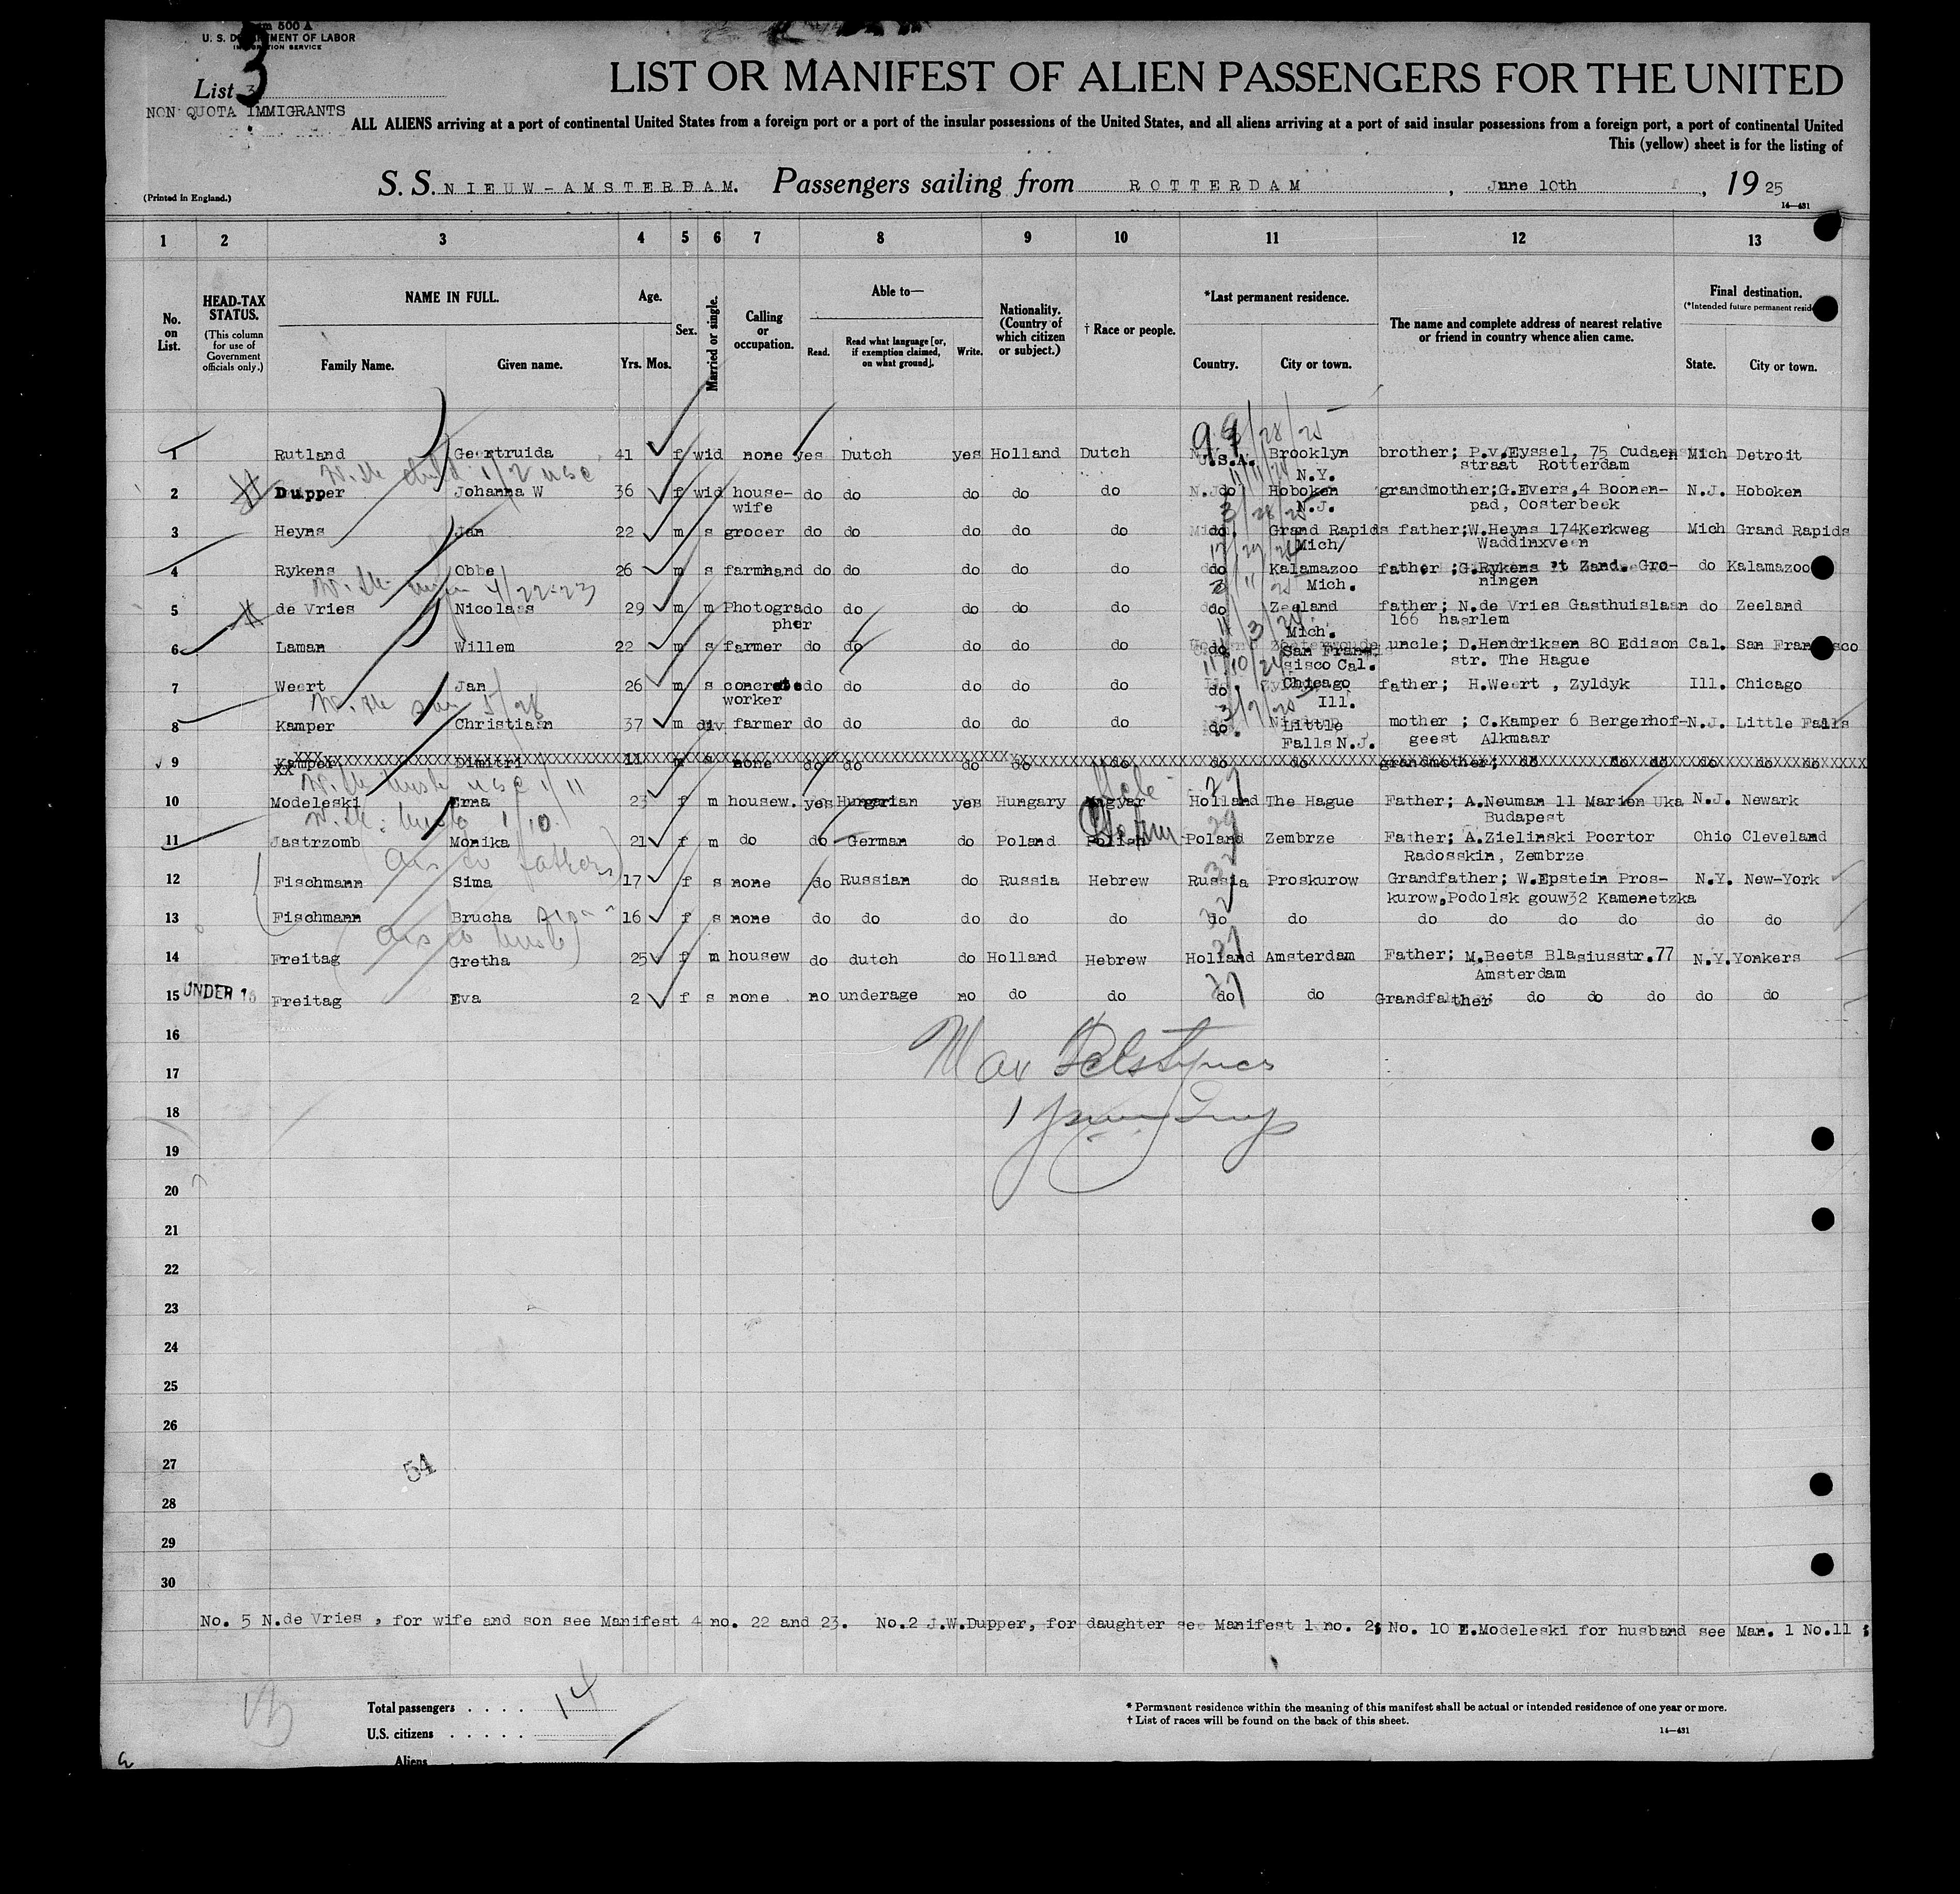 U. S. DEPARTMENT OF LABOR
IMMIGRATION SERVICE
List 3
NON QUOTA IMMIGRANTS
LIST OR MANIFEST OF ALIEN PASSENGERS FOR THE UNITED
ALL ALIENS arriving at a port of continental United States from a foreign port or a port of the insular possessions of the United States, and all aliens arriving at a port of said insular possessions from a foreign port, a port of continental United
This (yellow) sheet is for the listing of
(Printed in England.)
S. S. NIEUW-AMSTERDAM. Passengers sailing from ROTTERDAM, June 10th, 1925
14—431
1 2 3 4 5 6 7 8 9 10 11 12 13
No. on List.
HEAD-TAX STATUS. (This column for use of Government officials only.)
NAME IN FULL. Family Name. Given name.
Age. Yrs. Mos.
Sex.
Married or single.
Calling or occupation.
Able to— Read. Read what language [or, if exemption claimed, on what ground]. Write.
Nationality. (Country of which citizen or subject.)
† Race or people.
*Last permanent residence. Country. City or town.
The name and complete address of nearest relative or friend in country whence alien came.
Final destination. (*Intended future permanent resid
State. City or town.
1 Rutland Geertruida 41 f wid none yes Dutch yes Holland Dutch U.S.A. Brooklyn N.Y. brother; P.v.Eyssel, 75 Oudaen straat Rotterdam Mich Detroit
2 Dupper Johanna W 36 f wid house-wife do do do do do do Hoboken N.J. grandmother;G.Evers,4 Boonen-pad, Oosterbeek N.J. Hoboken
3 Heyns Jan 22 m s grocer do do do do do do Grand Rapids Mich/ father;W.Heyns 174Kerkweg Waddinxveen Mich Grand Rapids
4 Rykens Obbe 26 m s farmhand do do do do do do Kalamazoo Mich. father ;G.Rykens 't Zand. Gro-ningen do Kalamazoo
5 de Vries Nicolaas 29 m m Photographer do do do do do do Zeeland Mich. father; N.de Vries Gasthuislaan 166 haarlem do Zeeland
6 Laman Willem 22 m s farmer do do do do do do San Fransisco Cal. uncle; D.Hendriksen 80 Edison str. The Hague Cal. San Francisco
7 Weert Jan 26 m s concrete worker do do do do do do Chicago Ill. father; H.Weert , Zyldyk Ill. Chicago
8 Kamper Christiaan 37 m div farmer do do do do do do Little Falls N.J. mother ; C.Kamper 6 Bergerhof-geest Alkmaar N.J. Little Falls
9 Kamper Dimitri 11 m s none do do do do do do do grandmother; do do do do do do
10 Modeleski Erna 23 f m housew. yes Hungarian yes Hungary Magyar Holland The Hague Father; A.Neuman 11 Marien Uka Budapest N.J. Newark
11 Jastrzomb Monika 21 f m do do German do Poland Polish Poland Zembrze Father; A.Zielinski Pocrtor Radosskin, Zembrze Ohio Cleveland
12 Fischmann Sima 17 f s none do Russian do Russia Hebrew Russia Proskurow Grandfather; W.Epstein Pros-kurow,Podolsk gouw32 Kamenetzka N.Y. New-York
13 Fischmann Brucha 16 f s none do do do do do do do do do do do do do
14 Freitag Gretha 25 f m housew do dutch do Holland Hebrew Holland Amsterdam Father; M.Beets Blasiusstr.77 Amsterdam N.Y. Yonkers
15 UNDER 16 Freitag Eva 2 f s none no underage no do do do do Grandfather do do do do do
16
17
18
19
20
21
22
23
24
25
26
27
28
29
30
54
No. 5 N.de Vries , for wife and son see Manifest 4 no. 22 and 23. No.2 J.W.Dupper, for daughter see Manifest 1 no. 2; No. 10 E.Modeleski for husband see Man. 1 No.11 ;
Total passengers . . . . 14
U.S. citizens . . . . .
Aliens
* Permanent residence within the meaning of this manifest shall be actual or intended residence of one year or more.
† List of races will be found on the back of this sheet.
14—431